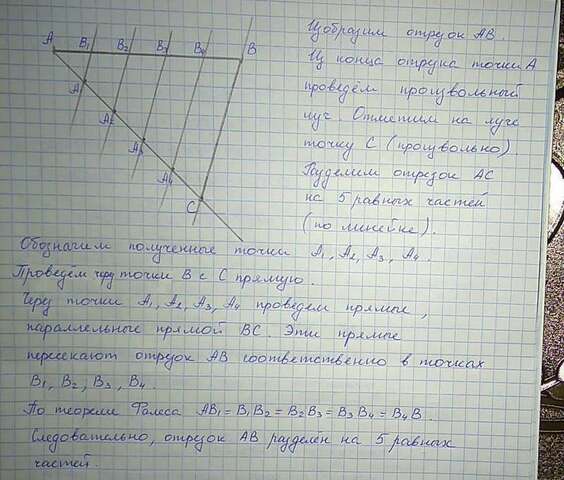 A B₁ B₂ B₃ B₄ B
A₁
A₂
A₃
A₄
C
Изобразим отрезок AB.
Из конца отрезка точки A
проведём произвольный
луч. Отметим на луче
точку C (произвольно).
Разделим отрезок AC
на 5 равных частей
(по линейке).
Обозначим полученные точки A₁, A₂, A₃, A₄.
Проведём через точки B и C прямую.
Через точки A₁, A₂, A₃, A₄ проведем прямые,
параллельные прямой BC. Эти прямые
пересекают отрезок AB соответственно в точках
B₁, B₂, B₃, B₄.
По теореме Фалеса AB₁ = B₁B₂ = B₂B₃ = B₃B₄ = B₄B.
Следовательно, отрезок AB разделён на 5 равных
частей.